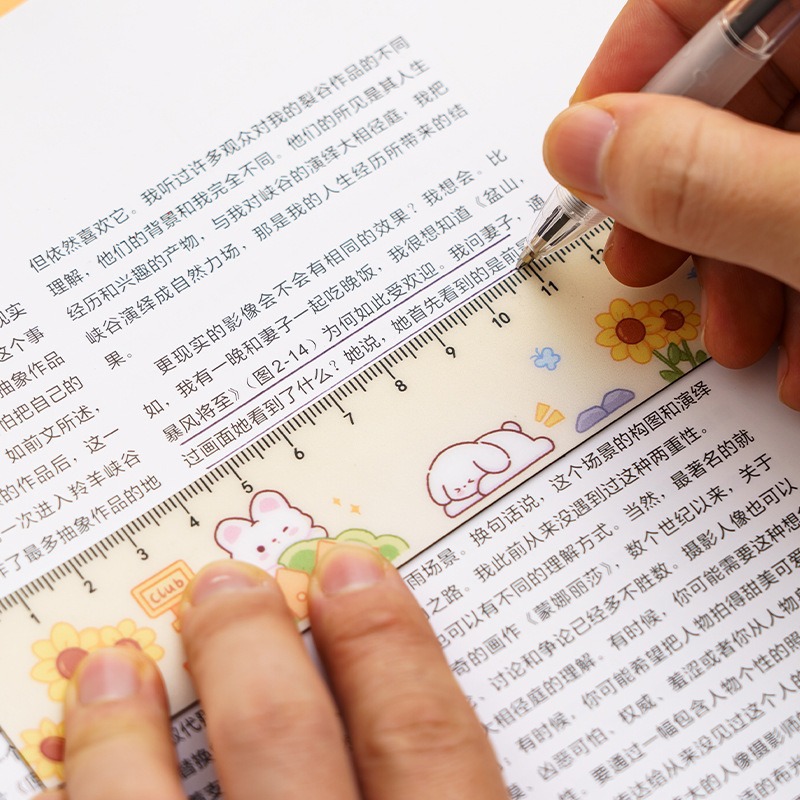 但依然喜欢它。我听过许多观众对我的裂谷作品的不同
理解，他们的背景和我完全不同。他们的所见是其人生
经历和兴趣的产物，与我对峡谷的演绎大相径庭，我把
峡谷演绎成自然力场，那是我的人生经历所带来的结
果。
更现实的影像会不会有相同的效果？我想会。比
如，我有一晚和妻子一起吃晚饭，我很想知道《盆山，
暴风将至》（图2-14）为何如此受欢迎。我问妻子，通
过画面她看到了什么？她说，她首先看到的是前
现实
这个事
抽象作品
怕把自己的
如前文所述，
的作品后，这一
一次进入羚羊峡谷
了最多抽象作品的地
1 2 3 4 5 6 7 8 9 10 11 12
Club
雨场景。换句话说，这个场景的构图和演绎
之路。我此前从来没遇到过这种两重性。
也可以有不同的理解方式。当然，最著名的就
奇的画作《蒙娜丽莎》，数个世纪以来，关于
讨论和争论已经多不胜数。摄影人像也可以
大相径庭的理解。有时候，你可能需要这种想
有时候，你可能希望把人物拍得甜美可爱
凶恶可怕、权威、羞涩或者你从人物
性，要通过一幅包含人物个性的照
达给从来没见过这个人的
大的人像摄影师
的布光